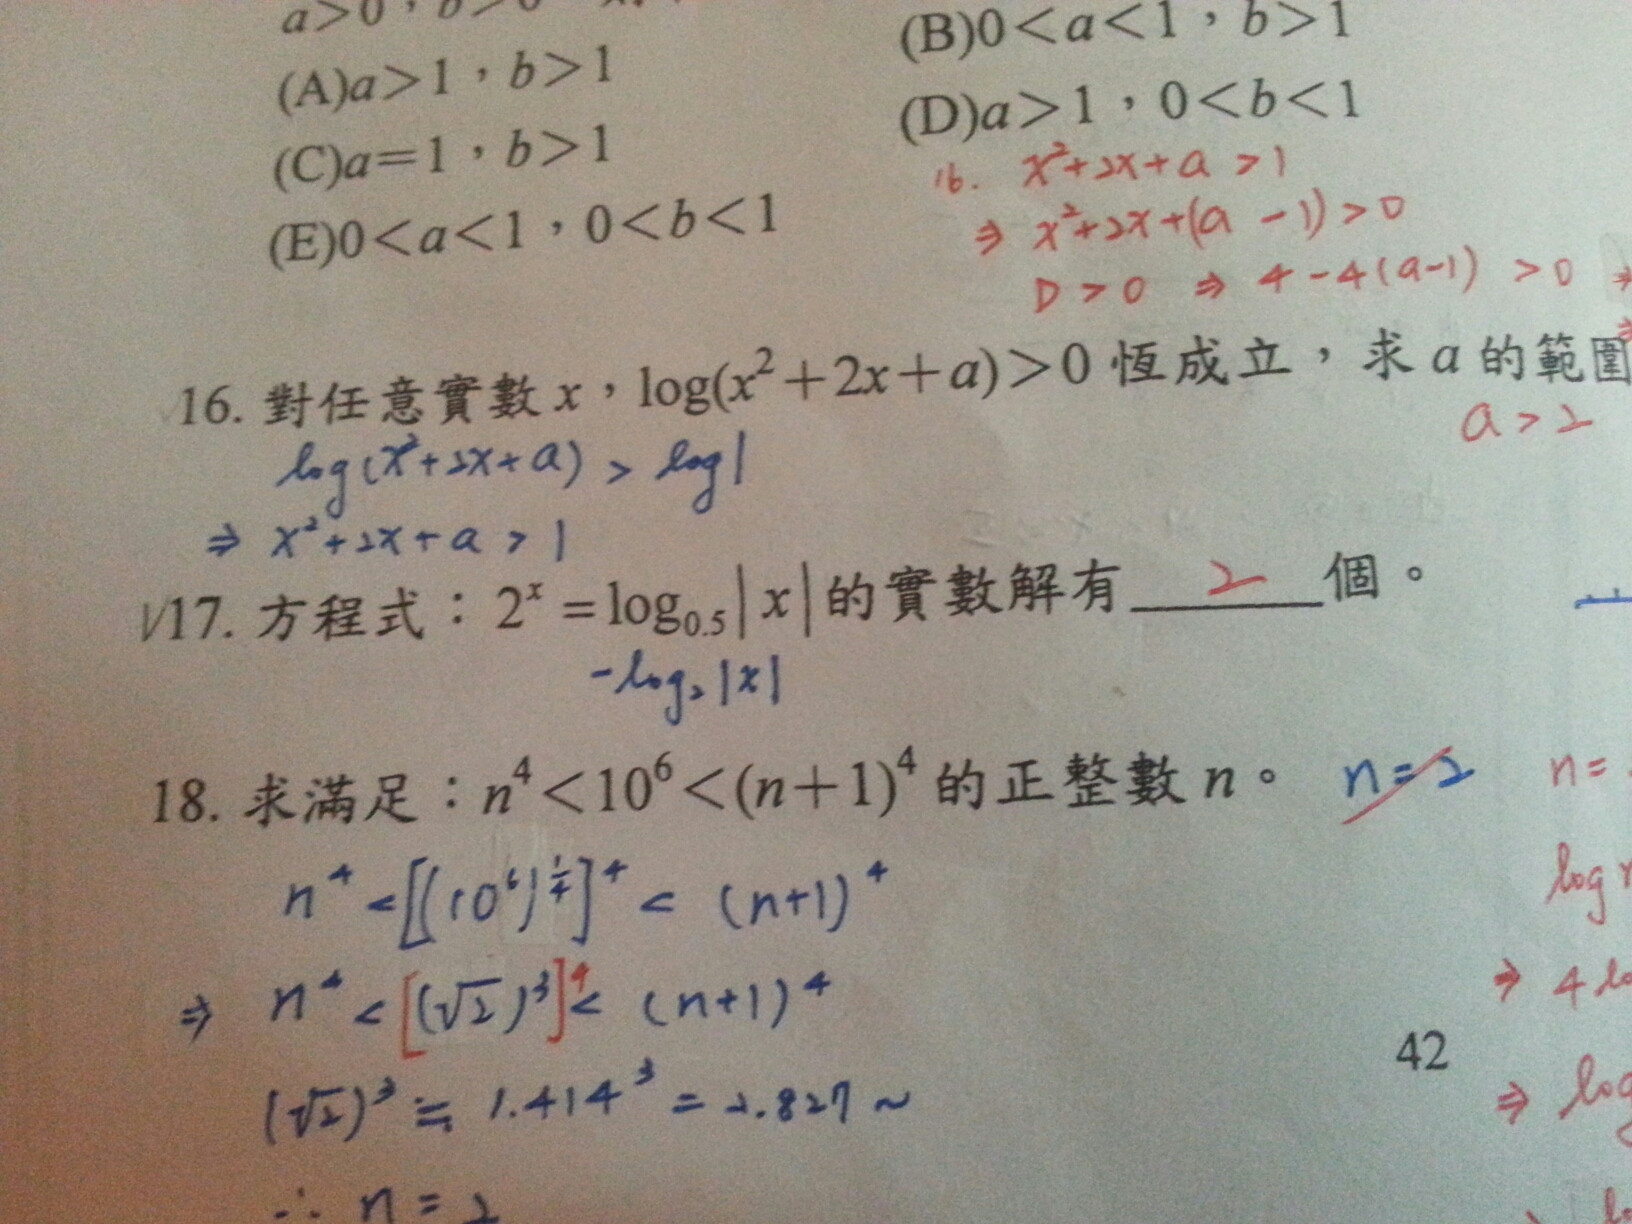 a>0，b>0
(A)a>1，b>1
(B)0<a<1，b>1
(C)a=1，b>1
(D)a>1，0<b<1
(E)0<a<1，0<b<1
16. x²+2x+a >1
⇒ x²+2x+(a -1)>0
D>0 ⇒ 4-4(a-1) >0
16. 對任意實數 x，log(x²+2x+a)>0 恆成立，求 a 的範圍
a>2
log(x²+2x+a) > log1
⇒ x²+2x+a > 1
17. 方程式：2ˣ=log₀.₅|x|的實數解有 2 個。
-log₂|x|
18. 求滿足：n⁴<10⁶<(n+1)⁴ 的正整數 n。 n=2 n=
n⁴ <[(10⁶)^¼]⁴ < (n+1)⁴
log
⇒ n⁴ < [(√2)³]⁴< (n+1)⁴
⇒ 4 lo
42
(√2)³ ≒ 1.414³ = 2.827~
⇒ log
∴ n = 2